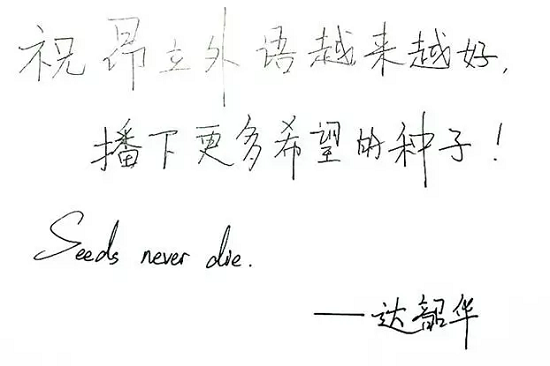 祝昂立外语越来越好，
播下更多希望的种子！
Seeds never die.
——达韶华